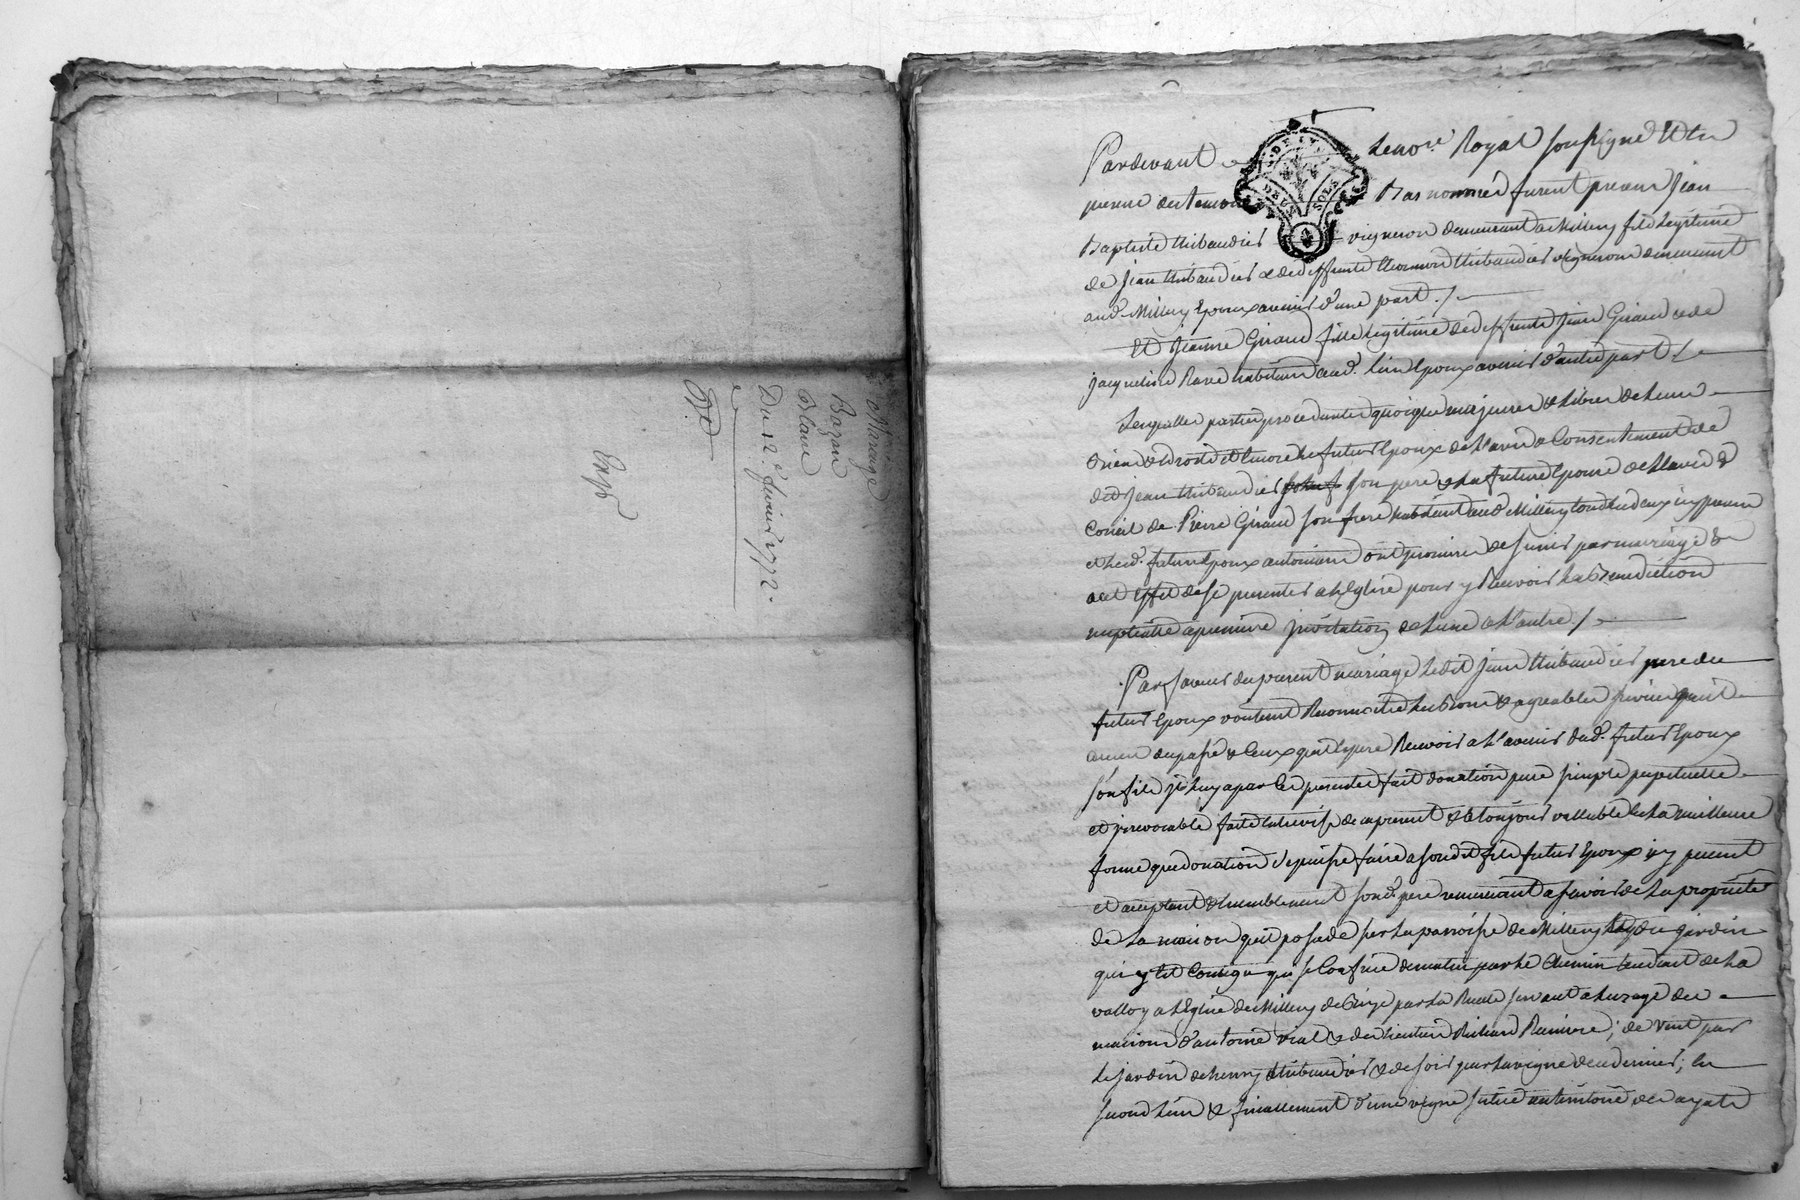 Mariage
Bazan
Du 12e fevrier 1772.
Expd
DEUX SOLS
Pardevant Le nore. Royal soussigné Et en
presence des temoins Bas nommés furent presens Jean
Baptiste thibaudier vigneron demeurant a Millery fils Legitime
de Jean thibaudier & de deffunte thibaudier vignerons demeurant
aud. Millery Epoux avenir d'une part ./.
Et Jeanne Giraud fille Legitime de deffunts Jean Giraud & de
Jacqueline Ravé habitans aud. lieu Epoux avenir d'autre part ./.
Lesquelles parties procedantes quoique majeures & Libres de Leurs
Biens & droits et Encore Le futur Epoux de L'avis & Consentement de
dit Jean thibaudier son pere & La future Epouse de L'avis &
Conseil de Pierre Giraud son frere habitant aud. Millery tous Les deux icy presens
et Lesd. futurs Epoux autorisans ont promis de s'unir par mariage &
a cet Effet de se presenter a L'Eglise pour y Recevoir La Benediction
nuptialle a premiere invitation de L'une a L'autre ./.
Par faveur du present mariage Ledit Jean thibaudier pere du
futur Epoux voulant Reconnoitre Les Bons & agreables services qu'il
a receu du passé & Ceux qu'il Espere Recevoir a L'avenir dud. futur Epoux
son fils il Luy a par Ces presentes fait donation pure simple perpetuelle
et irrevocable faite Entrevifs des apresent & a toujours vallable En La meilleure
forme que donation se puisse faire a sondit fils futur Epoux icy present
et acceptant & humblement sond. pere remerciant a savoir de La propriété
de La maison qu'il possede sur La parroisse de Millery du jardin
qui y Est Contigu qui se Confine de matin par Le Chemin tendant de La
valloy a L'Eglise de Millery de Bize par La Ruelle servant a Luzage des
maisons d'antoine vial & des heritiers Richard Ranviere; de vent par
Le jardin de henry thibaudier & de soir par La vigne de ce dernier; En
second Lieu & finallement d'une vigne située au territoire des ayats